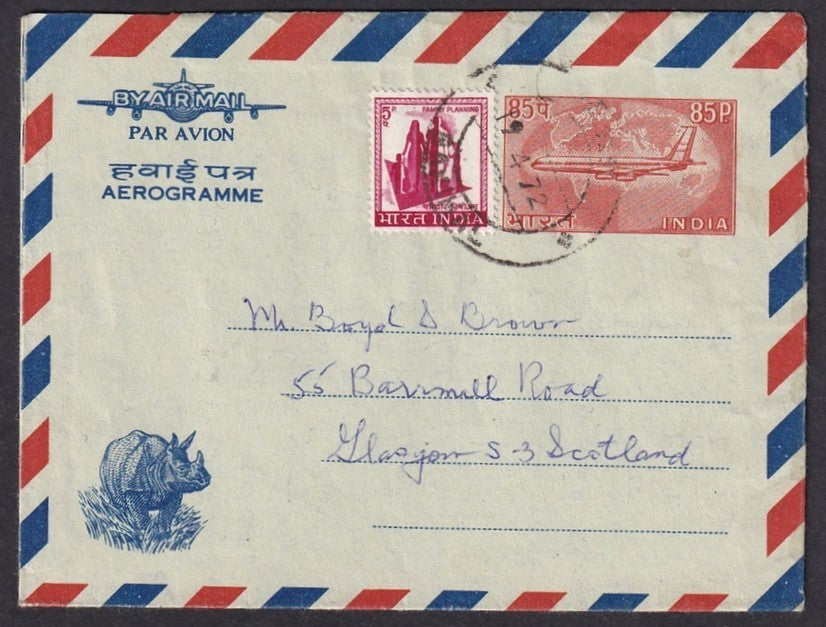 BY AIR MAIL
PAR AVION
हवाई पत्र
AEROGRAMME
5P FAMILY PLANNING
भारत INDIA
85पै 85P
भारत INDIA
4 72
Mr. Boyd S Brown
55 Barrmill Road
Glasgow S-3 Scotland